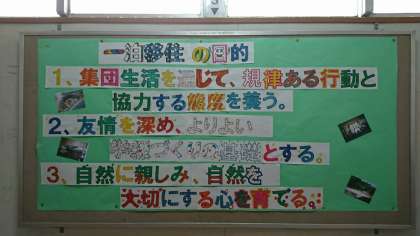 一泊移住の目的
1、集団生活を通じて、規律ある行動と
協力する態度を養う。
2、友情を深め、よりよい
学級づくりの基礎とする。
3、自然に親しみ、自然を
大切にする心を育てる。